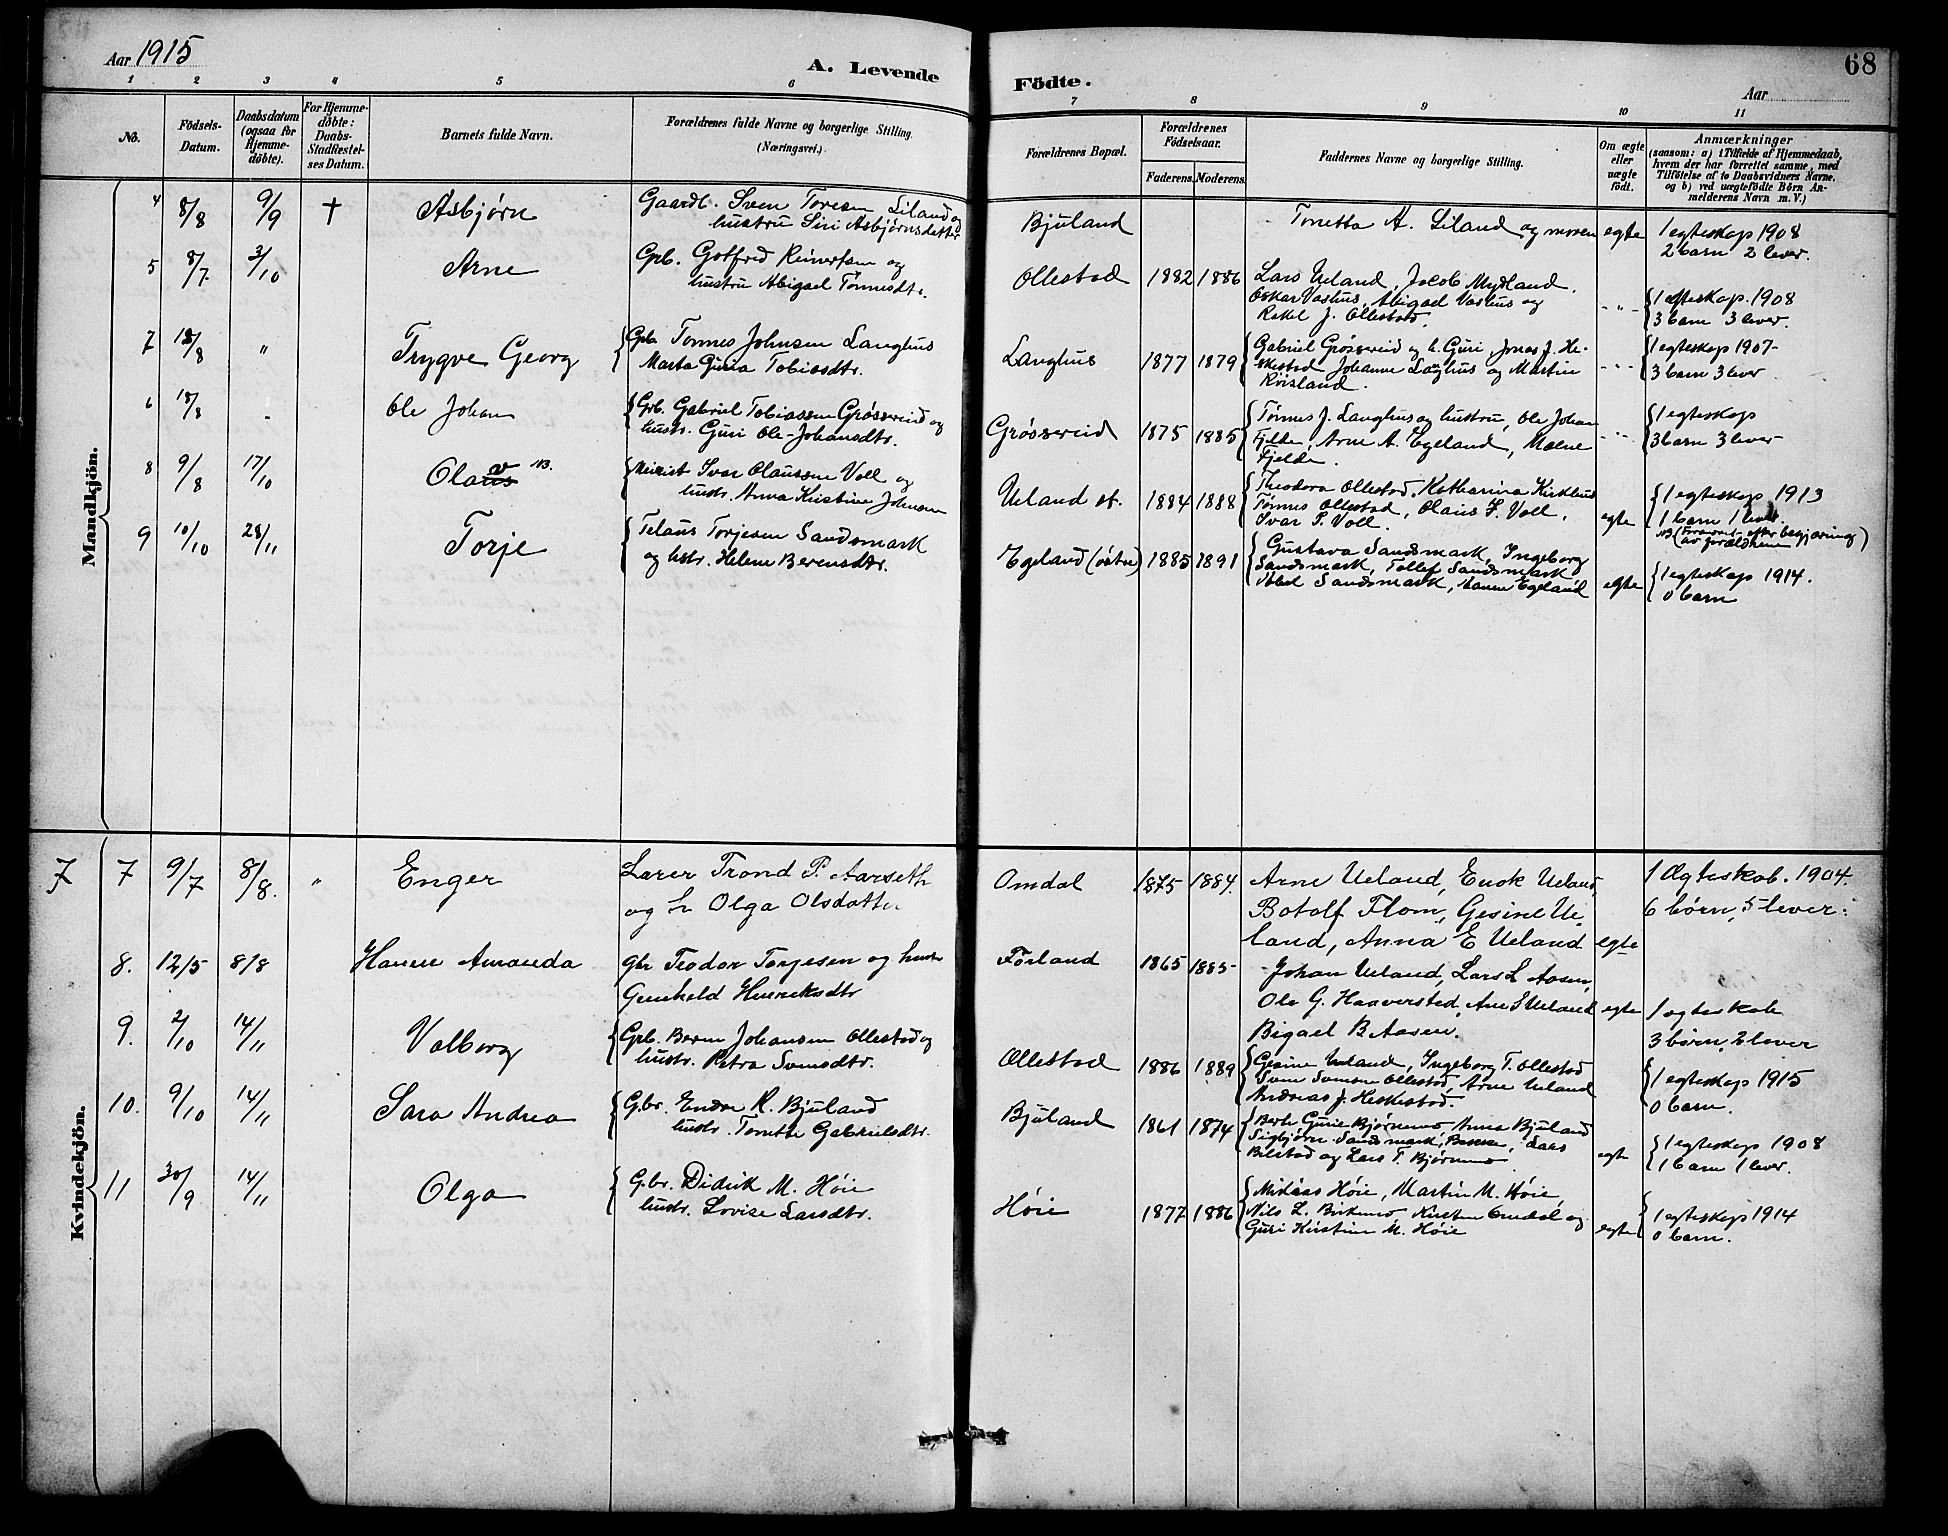 Aar 1915
A. Levende
Födte.
68
Aar
1 2 3 4 5 6 7 8 9 10 11
No.
Födsels-
Datum.
Daabsdatum
(ogsaa for
Hjemme-
döbte).
For Hjemme-
döbte:
Daabs-
Stadfestel-
ses Datum.
Barnets fulde Navn.
Forældrenes fulde Navne og borgerlige Stilling.
(Næringsvei.)
Forældrenes Bopæl.
Forældrenes
Födselsaar.
Faderens. Moderens.
Faddernes Navne og borgerlige Stilling.
Om ægte
eller
uægte
födt.
Anmærkninger
(saasom: a) i Tilfælde af Hjemmedaab,
hvem der har forrettet samme, med
Tilföielse af to Daabsvidners Navne,
og b) ved uægtefödte Börn An-
melderens Navn m. V.)
Mandkjön.
4 8/8 9/9 † Asbjørn
Gaardb. Sven Toresen Liland og
hustru Siri Asbjørnsdatter
Bjuland
Tonetta A. Liland og moren egte
1 egteskap 1908
2 barn 2 lever.
5 8/7 3/10 Arne
Grb. Gotfred Reinertsen og
hustru Abigael Tønnesdtr.
Ollestad 1882 1886
Lars Ueland, Jacob Mydland,
Oskar Vashus, Abigael Vashus og
Rakel J. Ollestad.
- " -
1 egteskap. 1908
3 barn 3 lever.
7 18/8 " Trygve Georg
Grb. Tønnes Johnsen Langhus
Marta Guria Tobiasdtr.
Langhus 1877 1879
Gabriel Grøssereid og h. Guri Jonas J. He-
skestad Johanne Langhus og Martin
Roisland.
- " -
1 egteskap 1907-
3 barn 3 lever
6 18/8 - Ole Johan
Grb. Gabriel Tobiassen Grøssereid og
hustr. Guri Ole-Johansdtr.
Grøssereid 1875 1885
Tønnes J. Langhus og hustru, Ole Johan
Fjelde, Arne A. Egeland, Malene
Fjelde.
- " -
1 egteskap
3 barn 3 lever
8 9/8 17/10 Olaus v NB.
Ivar Olaussen Voll og
hustr. Anna Kristine Johnsen
Ueland st. 1884 1888
Theodora Ollestad, Katharina Kirkhus
Tønnes Ollestad, Olaus I. Voll,
Ivar P. Voll.
egte
1 egteskap 1913
1 barn 1 lever
NB (Forandret efter begjæring
av forældrene)
9 10/10 28/11 Torje
Telaus Torjesen Sandsmark
og hstr. Helene Berensdtr.
Egeland (østre) 1885 1891
Gustava Sandsmark, Ingeborg
Sandsmark, Tollef Sandsmark
Abel Sandsmark, Hanne Egeland
egte
1 egteskap 1914.
0 barn
Kvindekjön.
7 7 9/7 8/8. " Enger
Lærer Trond P. Aarseth
og h Olga Olsdatter
Omdal 1875 1884.
Arne Ueland, Enok Ueland,
Botolf Flom, Gesine Ue
land, Anna E Ueland egte
1 Ægteskab. 1904.
6 børn, 5 lever.
8. 12/5 8/8 Hanne Amanda
gbr Teodor Torjesen og hustr
Gunhild Henriksdtr
Førland 1865 1885
Johan Ueland, Lars L Aasen,
Ole G. Haaverstad, Ane S Ueland egte
Bigael B. Aasen.
1 egteskab
3 børn, 2 lever
9. 2/10 14/11 Valborg
Grb. Bernt Johansen Ollestad og
hustr. Petra Svensdtr.
Ollestad 1886 1889
Gesine Ueland, Ingeborg T. Ollestad
Sven Ollestad, Arne Ueland
Andreas J. Heskestad.
1 egteskap 1915
0 barn.
10. 9/10 14/11 Sara Andrea
G.br. Endre R. Bjuland
hustr. Tonette Gabrielsdtr.
Bjuland 1861 1874
Berte Gurie Bjørnemo Anna Bjuland
Sigbjørn Sandsmark, Lars
Bilstad og Lars T. Bjørnemo
egte
1 egteskap 1908
1 barn 1 lever.
11 30/9 14/11 Olga
G.br. Didrik M. Høie
hustr. Lovise Larsdtr.
Høie 1877 1886
Midaas Høie, Martin M. Høie,
Nils L. Birkemo Kirsten Omdal og
Guri Kirstine M. Høie
egte
1 egteskap 1914
0 barn.